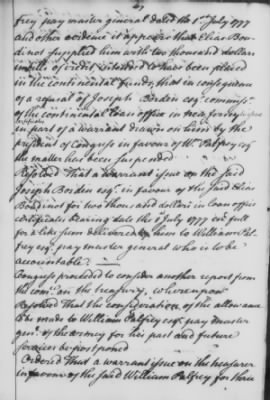 frey pay master general dated the 1st July 1777
and other evidence it appears that Elias Bou
dinot supplied him with two thousand dollars
in bills of credit intended to have been placed
in the continental funds, that in consequence
of a refusal of Joseph Borden esqr. commissr.
of the continental loan office in new jersey to give
certificates
in part of a warrant drawn on him by the
president of Congress in favour of Wm. Palfrey esqr
the matter has been suspended
Resolved That a warrant issue on the said
Joseph Borden esqr. in favour of the said Elias
Boudinot for two thousand dollars in loan office
certificates bearing date the 1st July 1777 in full
for a like sum delivered by them to William Pal
frey esqr. pay master general who is to be
accountable
Congress proceeded to consider another report from
the comee. on the treasury, whereupon
Resolved That the consideration of the allowance
to be made to William Palfrey esqr. pay master
genl. of the army for his past and future
services be postponed
Ordered That a warrant issue on the treasurer
in favour of the said William Palfrey for three